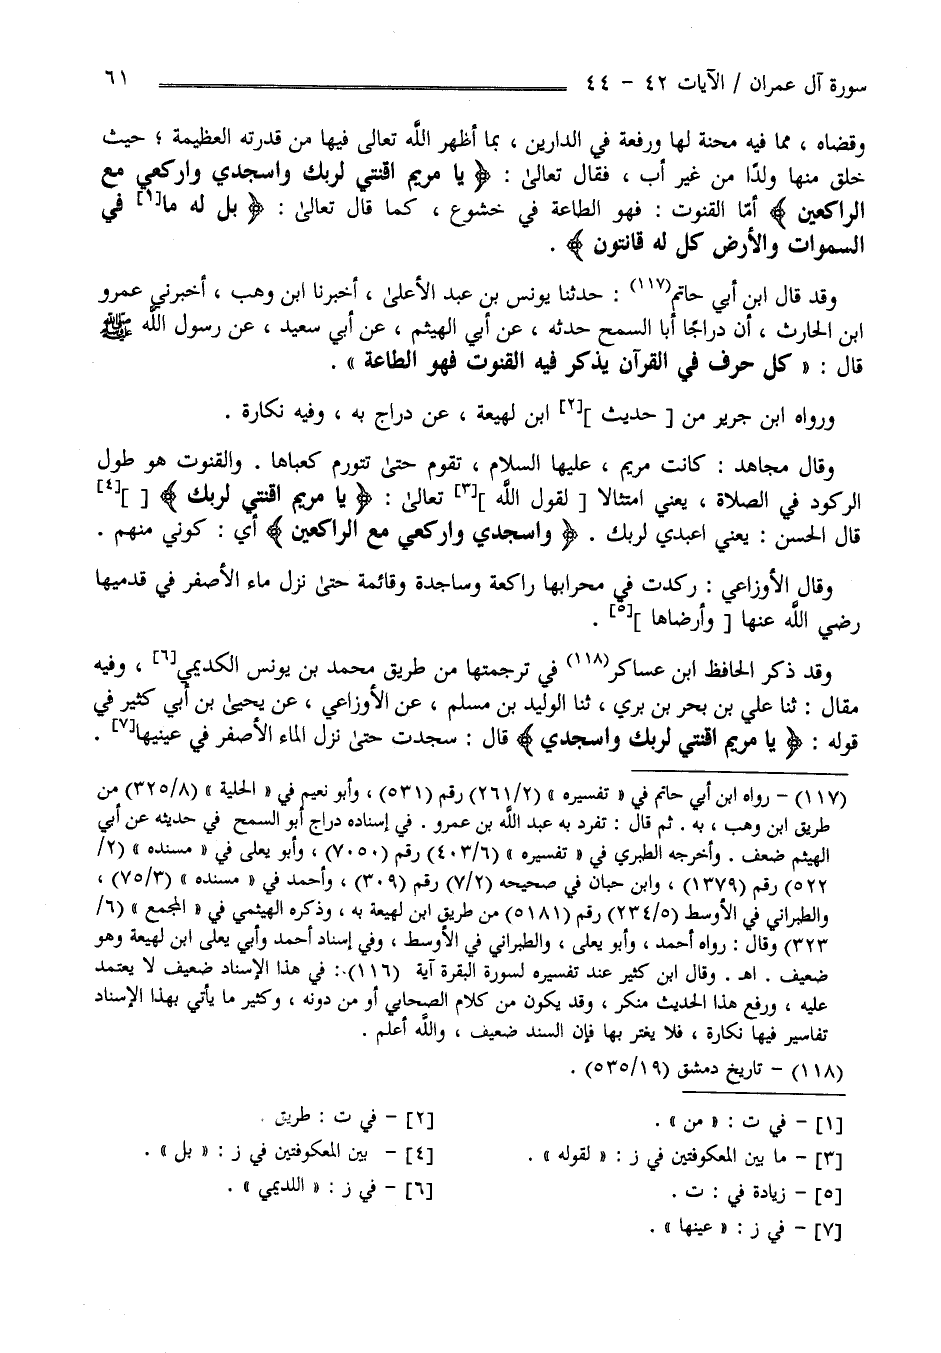 سورة آل عمران / الآيات ٤٢ - ٤٤ ٦١
وقضاه ، مما فيه محنة لها ورفعة في الدارين ، بما أظهر اللَّه تعالى فيها من قدرته العظيمة ؛ حيث
خلق منها ولدًا من غير أب ، فقال تعالىٰ : ﴿ يا مريم اقنتي لربك واسجدي واركعي مع
الراكعين ﴾ أمّا القنوت : فهو الطاعة في خشوع ، كما قال تعالىٰ : ﴿ بل له ما[١] في
السموات والأرض كل له قانتون ﴾ .
وقد قال ابن أبي حاتم(١١٧) : حدثنا يونس بن عبد الأعلىٰ ، أخبرنا ابن وهب ، أخبرني عمرو
ابن الحارث ، أن دراجًا أبا السمح حدثه ، عن أبي الهيثم ، عن أبي سعيد ، عن رسول اللَّه ﷺ
قال : « كل حرف في القرآن يذكر فيه القنوت فهو الطاعة » .
ورواه ابن جرير من [ حديث ][٢] ابن لهيعة ، عن دراج به ، وفيه نكارة .
وقال مجاهد : كانت مريم ، عليها السلام ، تقوم حتىٰ تتورم كعباها . والقنوت هو طول
الركود في الصلاة ، يعني امتثالا [ لقول اللَّه ][٣] تعالىٰ : ﴿ يا مريم اقنتي لربك ﴾ [ ][٤]
قال الحسن : يعني اعبدي لربك . ﴿ واسجدي واركعي مع الراكعين ﴾ أي : كوني منهم .
وقال الأوزاعي : ركدت في محرابها راكعة وساجدة وقائمة حتىٰ نزل ماء الأصفر في قدميها
رضي اللَّه عنها [ وأرضاها ][٥] .
وقد ذكر الحافظ ابن عساكر(١١٨) في ترجمتها من طريق محمد بن يونس الكديمي[٦] ، وفيه
مقال : ثنا علي بن بحر بن بري ، ثنا الوليد بن مسلم ، عن الأوزاعي ، عن يحيىٰ بن أبي كثير في
قوله : ﴿ يا مريم اقنتي لربك واسجدي ﴾ قال : سجدت حتىٰ نزل الماء الأصفر في عينيها[٧] .
(١١٧) - رواه ابن أبي حاتم في « تفسيره » (٢٦١/٢) رقم (٥٣١) ، وأبو نعيم في « الحلية » (٣٢٥/٨) من
طريق ابن وهب ، به . ثم قال : تفرد به عبد اللَّه بن عمرو . في إسناده دراج أبو السمح في حديثه عن أبي
الهيثم ضعف . وأخرجه الطبري في « تفسيره » (٤٠٣/٦) رقم (٧٠٥٠) ، وأبو يعلى في « مسنده » (٢/
٥٢٢) رقم (١٣٧٩) ، وابن حبان في صحيحه (٧/٢) رقم (٣٠٩) ، وأحمد في « مسنده » (٧٥/٣) ،
والطبراني في الأوسط (٢٣٤/٥) رقم (٥١٨١) من طريق ابن لهيعة به ، وذكره الهيثمي في « المجمع » (٦/
٣٢٣) وقال : رواه أحمد ، وأبو يعلى ، والطبراني في الأوسط ، وفي إسناد أحمد وأبي يعلى ابن لهيعة وهو
ضعيف . اهـ . وقال ابن كثير عند تفسيره لسورة البقرة آية (١١٦) : في هذا الإسناد ضعيف لا يعتمد
عليه ، ورفع هذا الحديث منكر ، وقد يكون من كلام الصحابي أو من دونه ، وكثير ما يأتي بهذا الإسناد
تفاسير فيها نكارة ، فلا يغتر بها فإن السند ضعيف ، واللَّه أعلم .
(١١٨) - تاريخ دمشق (٥٣٥/١٩) .
[١] - في ت : « من » . [٢] - في ت : طريق .
[٣] - ما بين المعكوفتين في ز : « لقوله » . [٤] - بين المعكوفتين في ز : « بل » .
[٥] - زيادة في : ت . [٦] - في ز : « اللديمي » .
[٧] - في ز : « عينها » .